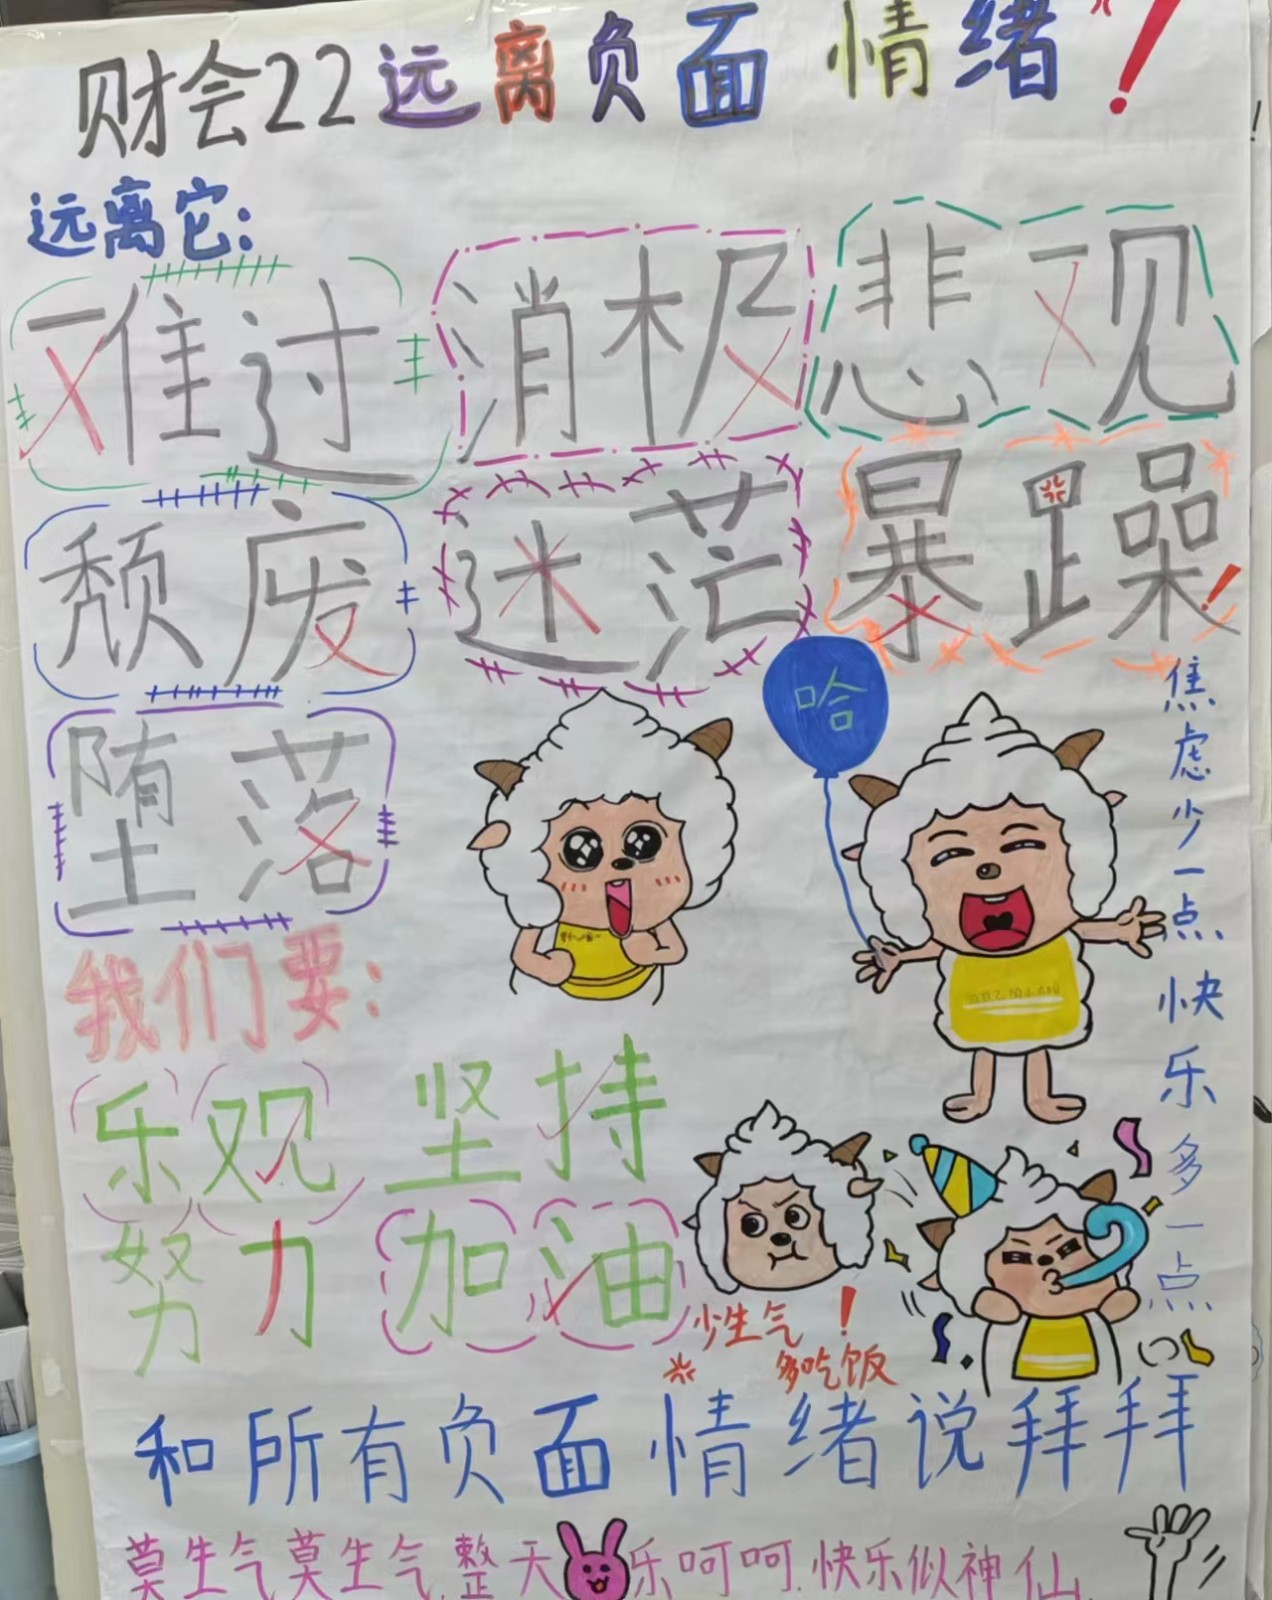 财会22远离负面情绪!
远离它:
难过 消极 悲观
颓废 迷茫 暴躁!
堕落
哈
焦虑少一点快乐多一点
我们要:
乐观 坚持
努力 加油
少生气!
多吃饭
和所有负面情绪说拜拜
莫生气莫生气.整天乐呵呵.快乐似神仙